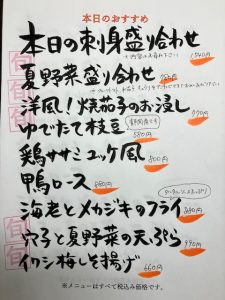 本日のおすすめ
本日の刺身盛り合わせ
1540円
夏野菜盛り合わせ
洋風!焼茄子のお浸し
770円
ゆでたて枝豆
静岡産です
580円
鶏ササミユッケ風
800円
鴨ロース
880円
海老とメカジキのフライ
タルタルソースたっぷり
穴子と夏野菜の天ぷら
990円
イワシ梅しそ揚げ
660円
旬
旬
旬
旬
旬
※メニューはすべて税込み価格です。